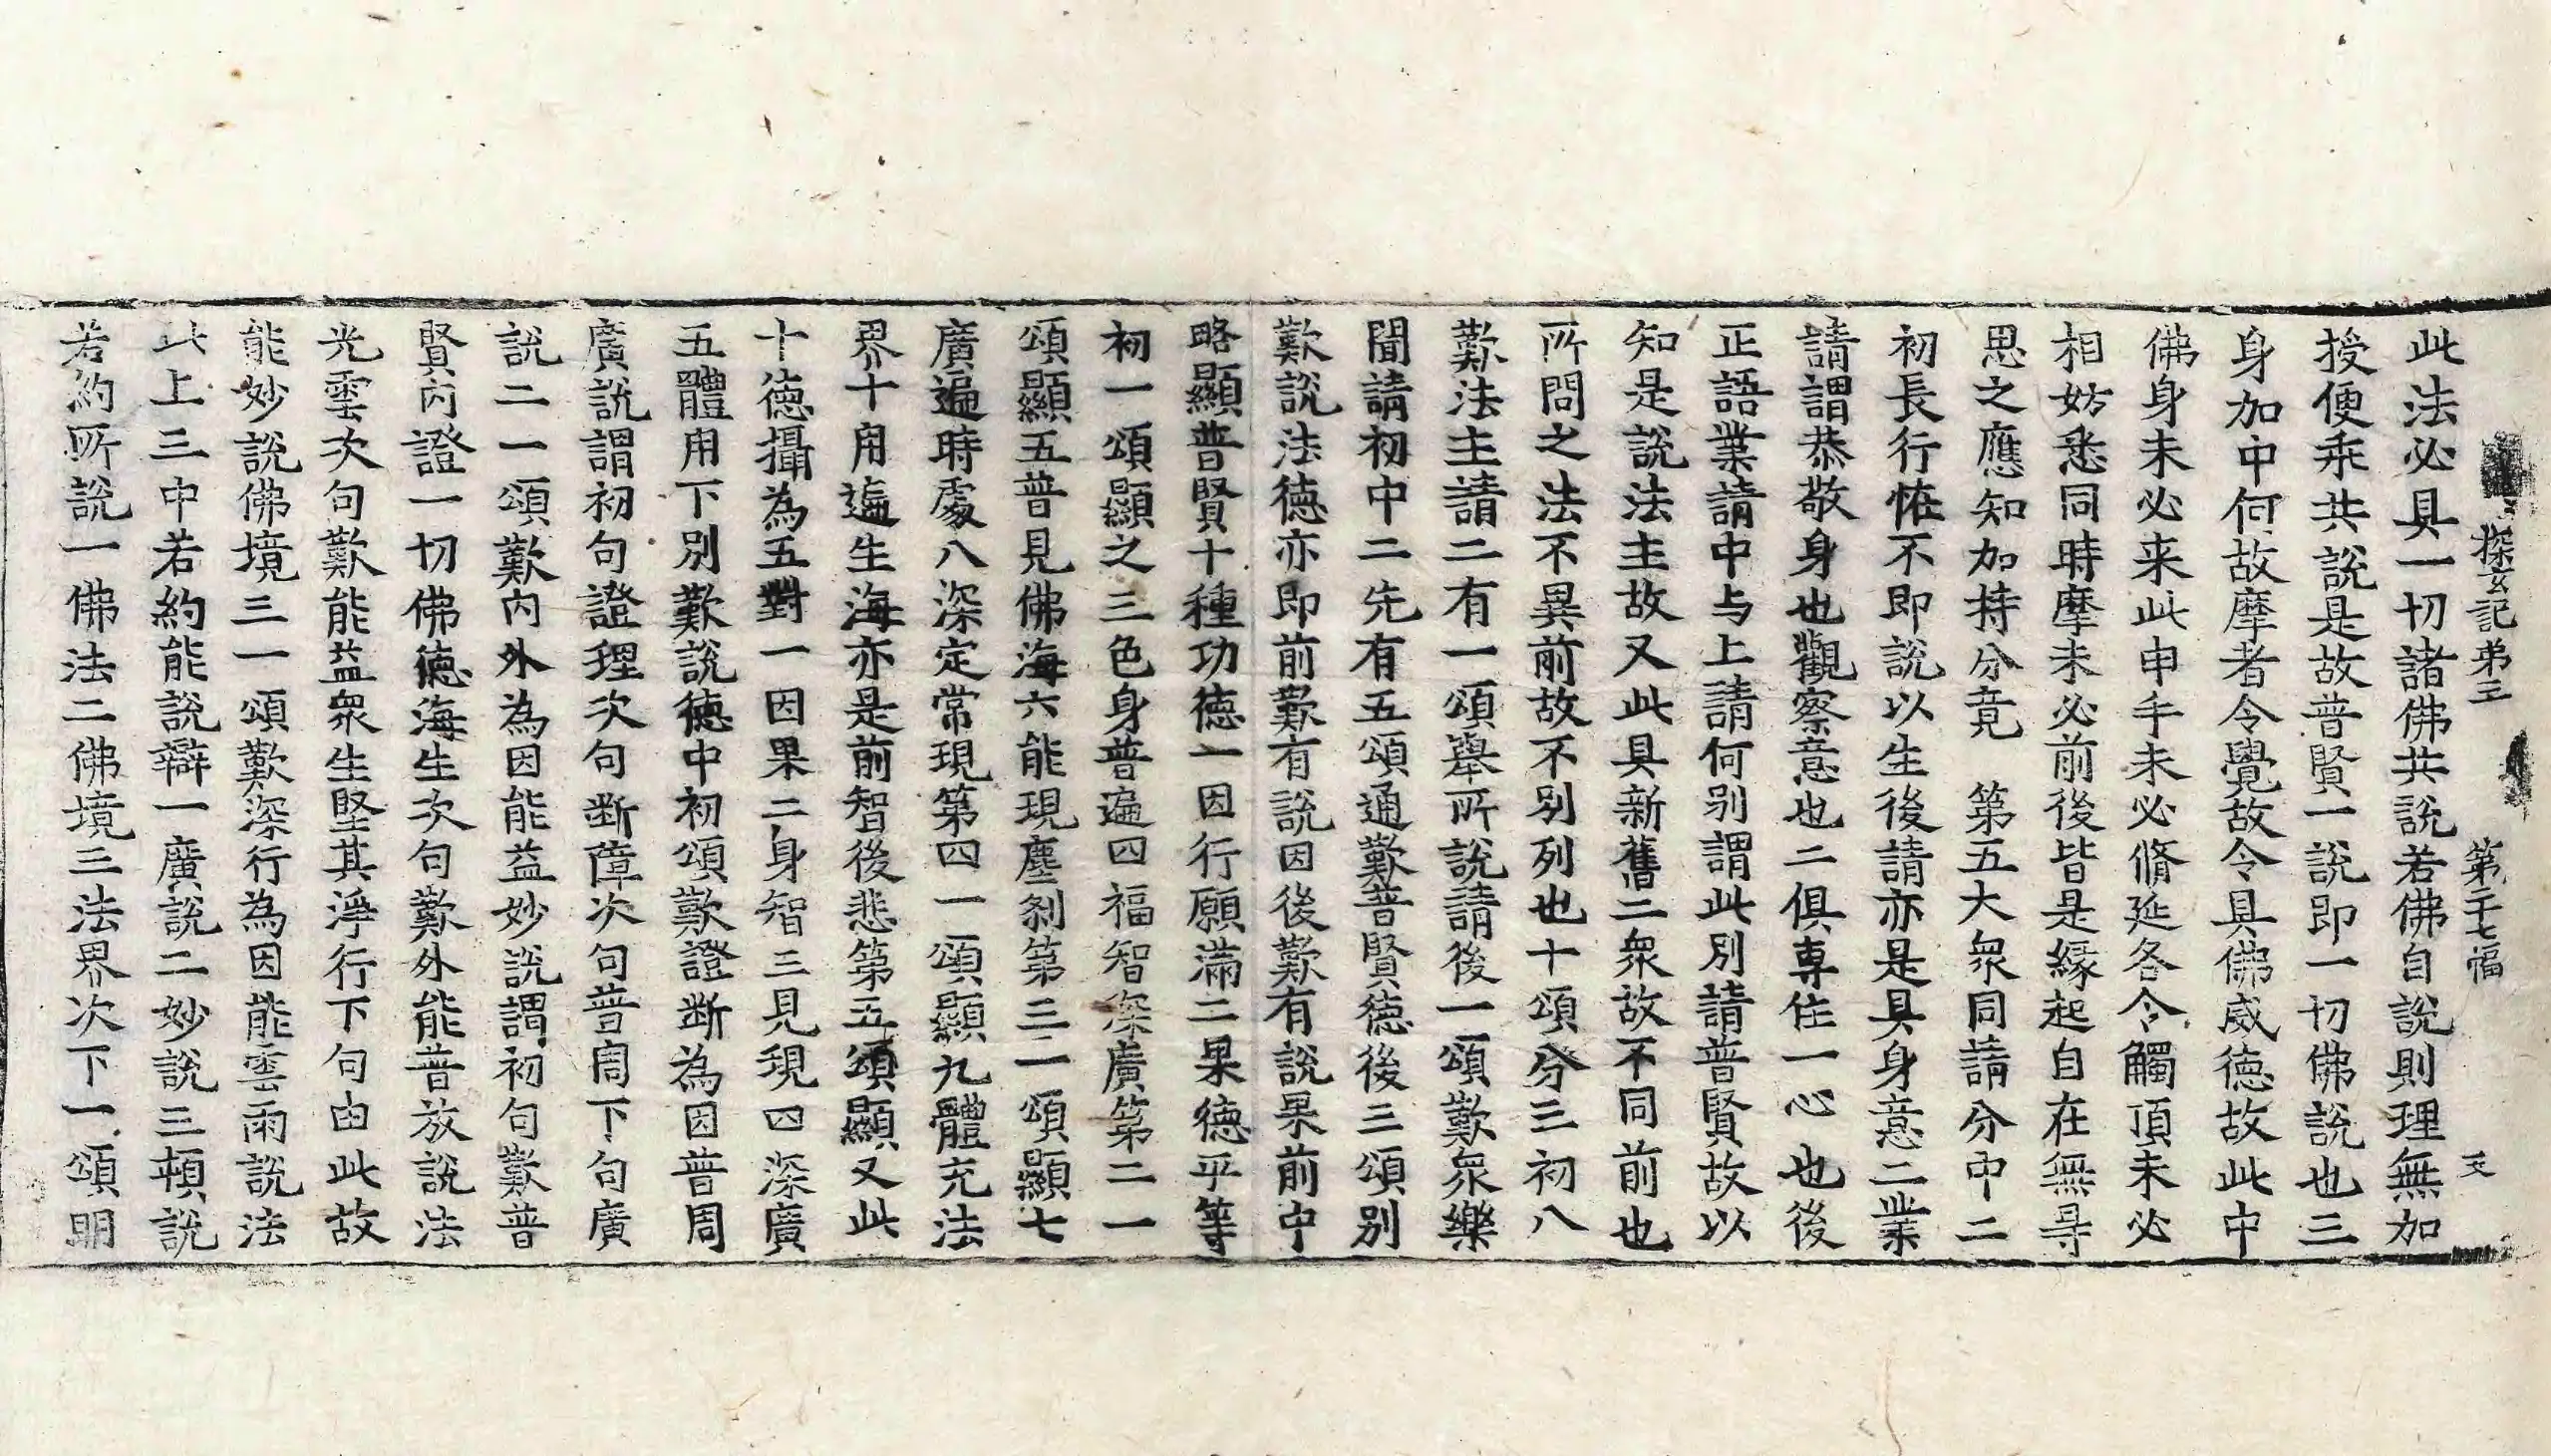 探玄記第三　第二十七幅　文
此法必具一切諸佛共說若佛自說則理無加
授便乖共說是故普賢一說即一切佛說也三
身加中何故摩者令覺故令具佛威德故此中
佛身未必来此申手未必脩延各令觸頂未必
相妨悉同時摩未必前後皆是縁起自在無㝵
思之應知加持分竟　第五大衆同請分中二
初長行恠不即說以生後請亦是具身意二業
請謂恭敬身也觀察意也二俱専住一心也後
正語業請中与上請何别謂此別請普賢故以
知是說法主故又此具新舊二衆故不同前也
所問之法不異前故不别列也十頌分三初八
歎法主請二有一頌舉所說請後一頌歎衆樂
聞請初中二先有五頌通歎普賢德後三頌别
歎說法德亦即前歎有說因後歎有說果前中
略顯普賢十種功德一因行願滿二果德平等
初一頌顯之三色身普遍四福智深廣第二一
頌顯五普見佛海六能現塵刹第三一頌顯七
廣遍時處八深定常現第四一頌顯九體充法
界十用遍生海亦是前智後悲第五頌顯又此
十德攝為五對一因果二身智三見現四深廣
五體用下別歎說德中初頌歎證斷為因普周
廣說謂初句證理次句断障次句普周下句廣
說二一頌歎内外為因能益妙說謂初句歎普
賢内證一切佛德海生次句歎外能普放說法
光雲次句歎能益衆生堅其淨行下句由此故
能妙說佛境三一頌歎深行為因能雲雨說法
此上三中若約能說辯一廣說二妙說三頓說
若約所說一佛法二佛境三法界次下一頌明